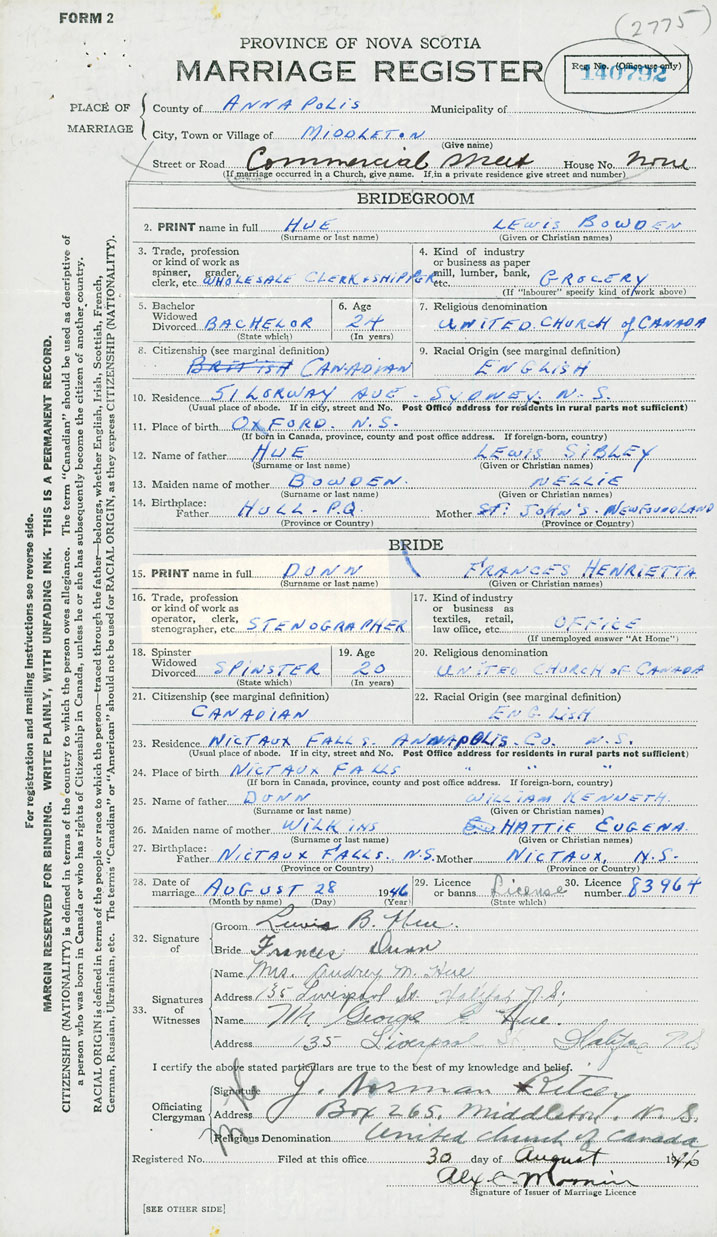 FORM 2
(2775)
PROVINCE OF NOVA SCOTIA
MARRIAGE REGISTER
Reg. No. (Office use only)
140792
PLACE OF MARRIAGE
County of ANNAPOLIS Municipality of
City, Town or Village of MIDDLETON
(Give name)
Street or Road Commercial Street House No. none
(If marriage occurred in a Church, give name. If in a private residence give street and number)
BRIDEGROOM
2. PRINT name in full HUE LEWIS BOWDEN
(Surname or last name) (Given or Christian names)
3. Trade, profession or kind of work as spinner, grader, clerk, etc. WHOLESALE CLERK & SHIPPER
4. Kind of industry or business as paper mill, lumber, bank, etc. GROCERY
(If "labourer" specify kind of work above)
5. Bachelor Widowed Divorced BACHELOR
(State which)
6. Age 24
(In years)
7. Religious denomination
UNITED CHURCH of CANADA
8. Citizenship (see marginal definition)
BRITISH CANADIAN
9. Racial Origin (see marginal definition)
ENGLISH
10. Residence 51 LORWAY AVE - SYDNEY, N.S.
(Usual place of abode. If in city, street and No. Post Office address for residents in rural parts not sufficient)
11. Place of birth OXFORD. N.S.
(If born in Canada, province, county and post office address. If foreign-born, country)
12. Name of father HUE LEWIS SIBLEY
(Surname or last name) (Given or Christian names)
13. Maiden name of mother BOWDEN. NELLIE
(Surname or last name) (Given or Christian names)
14. Birthplace: Father HULL - P.Q. Mother ST. JOHN'S - NEWFOUNDLAND
(Province or Country) (Province or Country)
BRIDE
15. PRINT name in full DUNN FRANCES HENRIETTA
(Surname or last name) (Given or Christian names)
16. Trade, profession or kind of work as operator, clerk, stenographer, etc. STENOGRAPHER
17. Kind of industry or business as textiles, retail, law office, etc. OFFICE
(If unemployed answer "At Home")
18. Spinster Widowed Divorced SPINSTER
(State which)
19. Age 20
(In years)
20. Religious denomination
UNITED CHURCH OF CANADA
21. Citizenship (see marginal definition)
CANADIAN
22. Racial Origin (see marginal definition)
ENGLISH
23. Residence NICTAUX FALLS. ANNAPOLIS. CO. N.S.
(Usual place of abode. If in city, street and No. Post Office address for residents in rural parts not sufficient)
24. Place of birth NICTAUX FALLS " " "
(If born in Canada, province, county and post office address. If foreign-born, country)
25. Name of father DUNN WILLIAM KENNETH.
(Surname or last name) (Given or Christian names)
26. Maiden name of mother WILKINS HATTIE EUGENA.
(Surname or last name) (Given or Christian names)
27. Birthplace: Father NICTAUX FALLS. N.S. Mother NICTAUX, N.S.
(Province or Country) (Province or Country)
28. Date of marriage AUGUST 28 1946
(Month by name) (Day) (Year)
29. Licence or banns License
(State which)
30. Licence number 83964
32. Signature of
Groom Lewis B. Hue.
Bride Frances Dunn
33. Signatures of Witnesses
Name Mrs. Audrey M. Hue
Address 135 Liverpool St. Halifax N.S.
Name Mr. George Hue.
Address 135 Liverpool St Halifax N.S.
I certify the above stated particulars are true to the best of my knowledge and belief.
Officiating Clergyman
Signature J. Norman Ritcey
Address Box 265, Middleton, N.S.
Religious Denomination United Church of Canada
Registered No. Filed at this office 30 day of August 1946
Signature of Issuer of Marriage Licence
[SEE OTHER SIDE]
For registration and mailing instructions see reverse side.
MARGIN RESERVED FOR BINDING. WRITE PLAINLY, WITH UNFADING INK. THIS IS A PERMANENT RECORD.
CITIZENSHIP (NATIONALITY) is defined in terms of the country to which the person owes allegiance. The term "Canadian" should be used as descriptive of
a person who was born in Canada or who has rights of Citizenship in Canada, unless he or she has subsequently become the citizen of another country.
RACIAL ORIGIN is defined in terms of the people or race to which the person—traced through the father—belongs, whether English, Irish, Scottish, French,
German, Russian, Ukrainian, etc. The terms "Canadian" or "American" should not be used for RACIAL ORIGIN, as they express CITIZENSHIP (NATIONALITY).